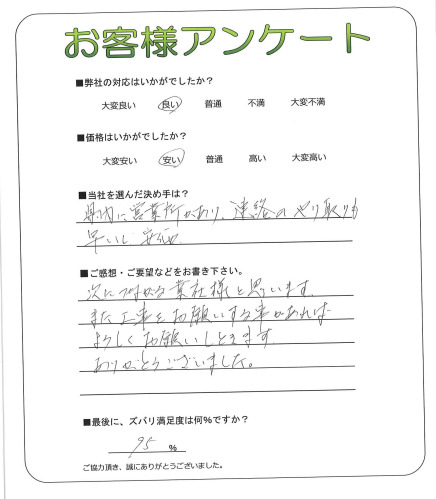 お客様アンケート
■弊社の対応はいかがでしたか？
大変良い 良い 普通 不満 大変不満
■価格はいかがでしたか？
大変安い 安い 普通 高い 大変高い
■当社を選んだ決め手は？
県内に営業所があり、連絡のやり取りも
早いし安心
■ご感想・ご要望などをお書き下さい。
次につながる業社様と思います。
また工事をお願いする事があれば
よろしくお願いしときます
ありがとうございました。
■最後に、ズバリ満足度は何%ですか？
95 %
ご協力頂き、誠にありがとうございました。